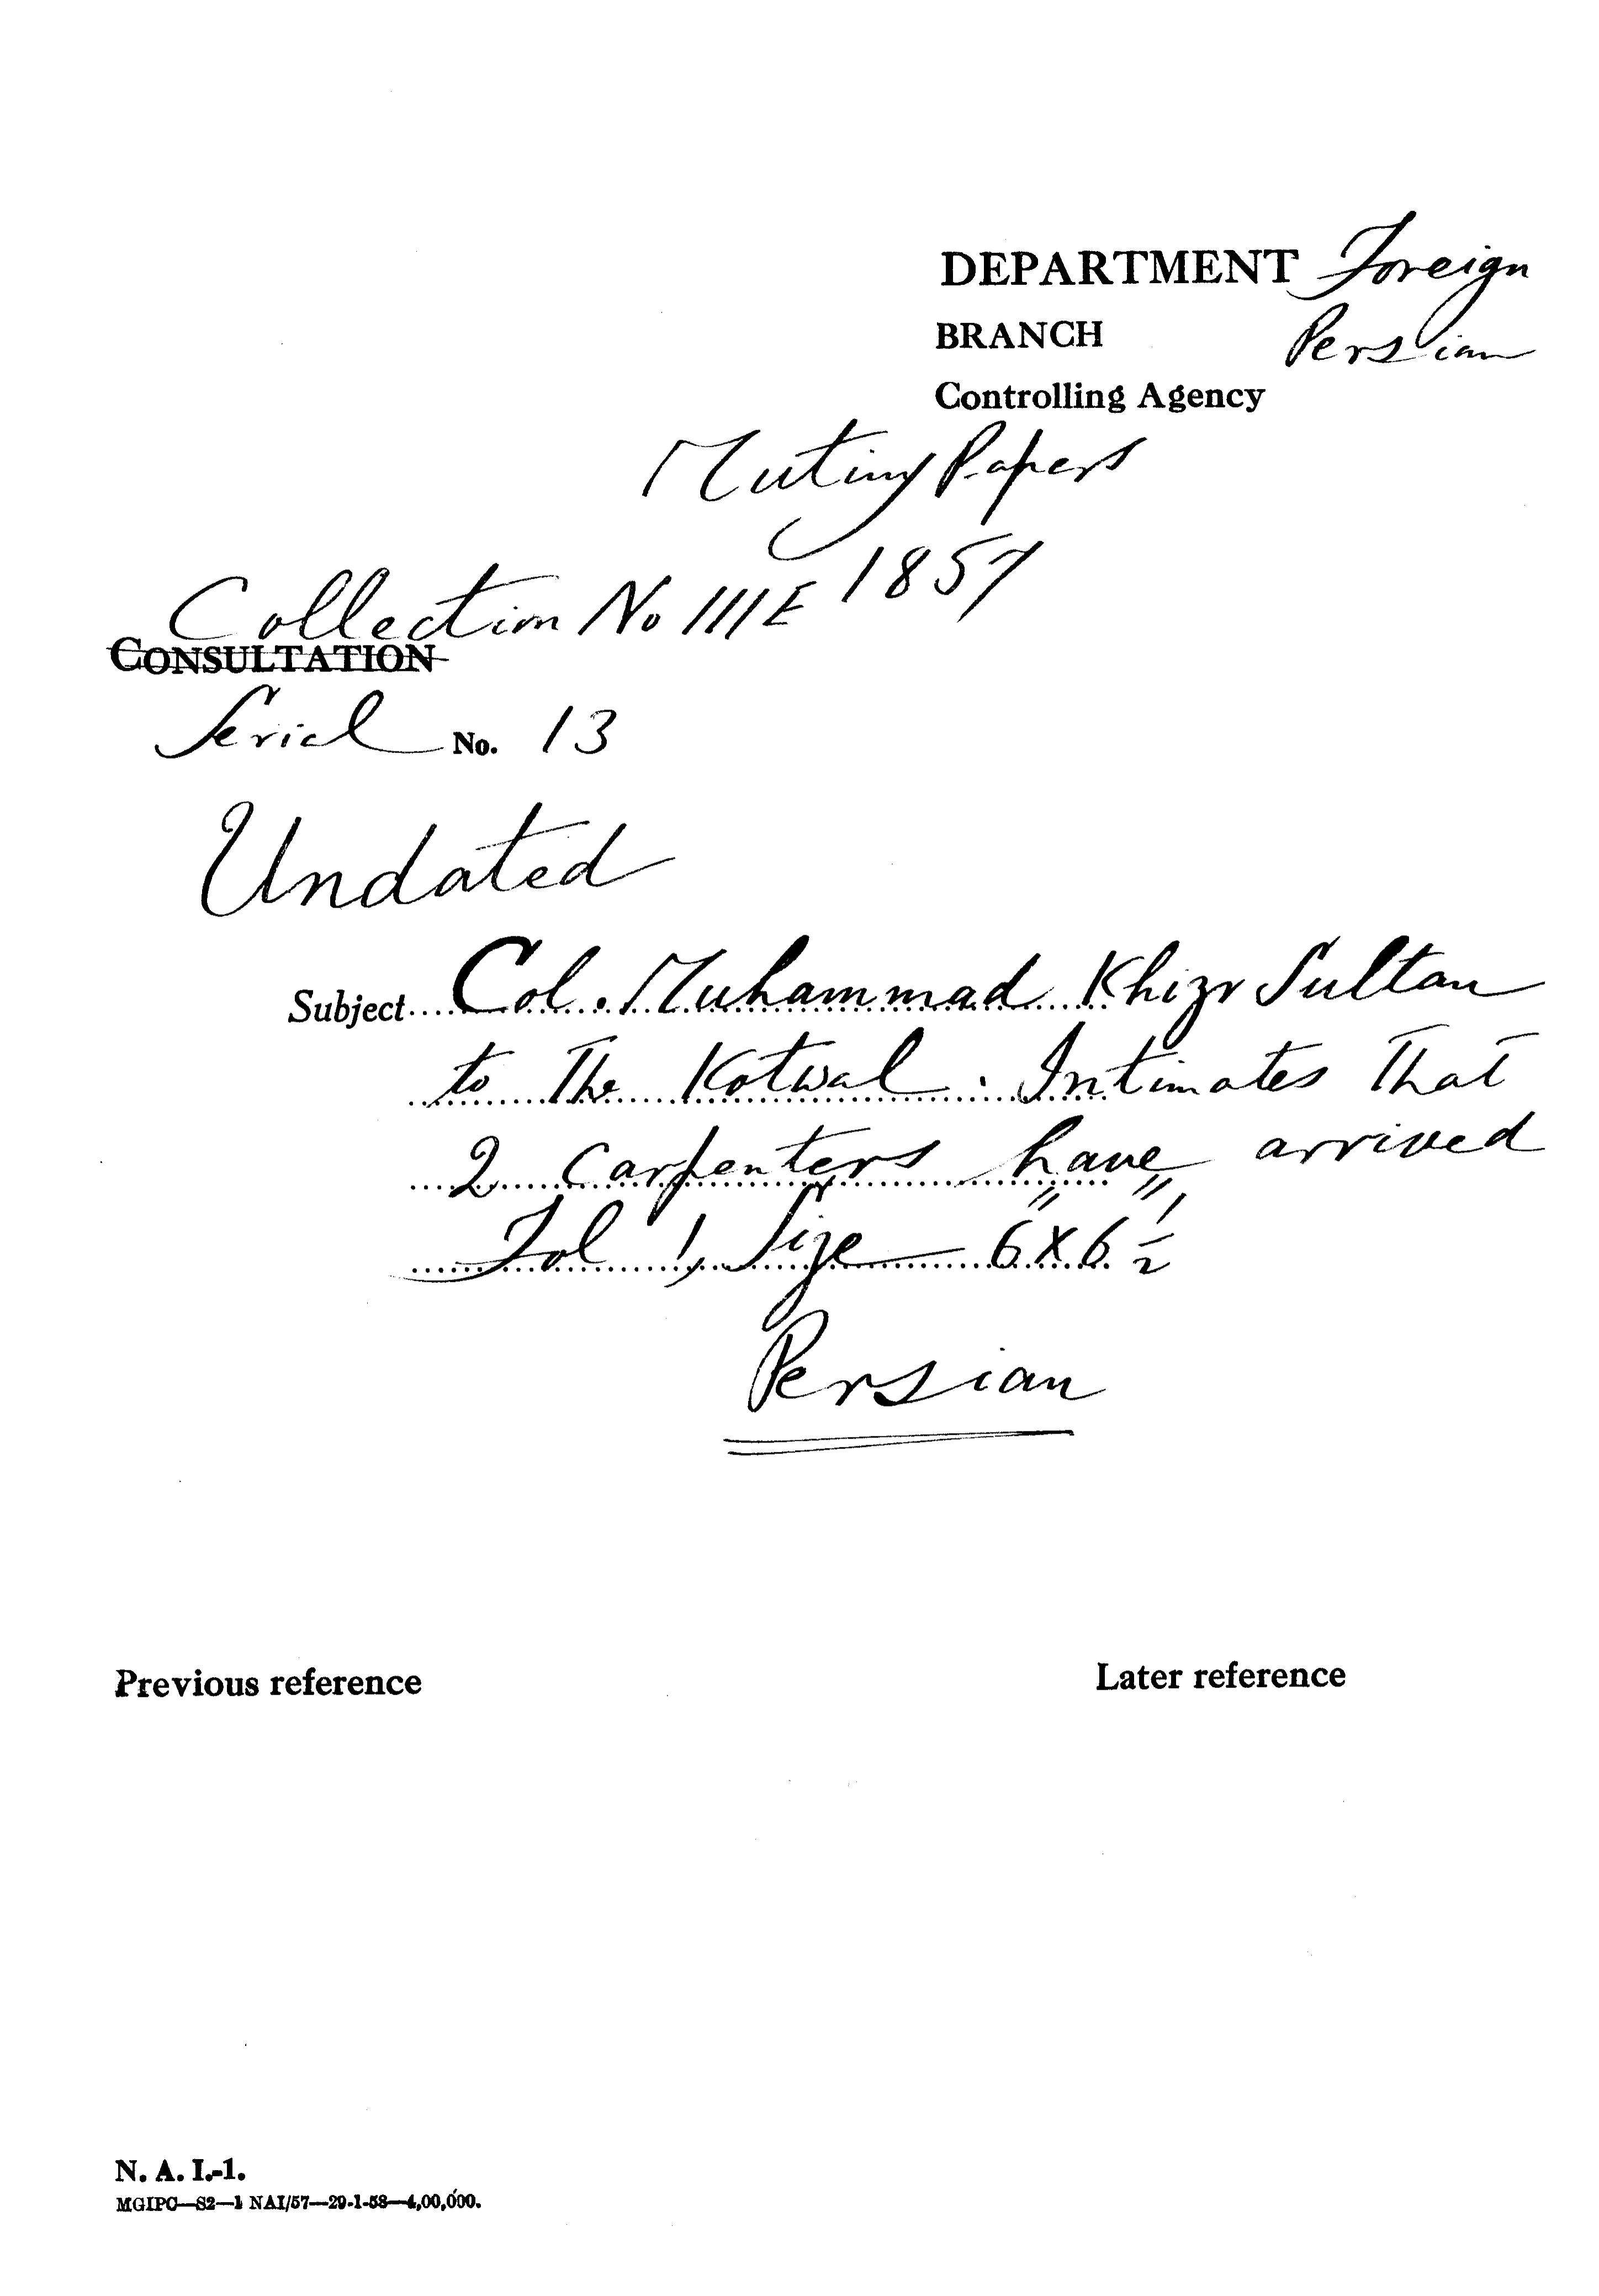 DEPARTMENT Foreign
BRANCH Persian
Controlling Agency
Mutiny Papers
1857
Collection No IIIE
CONSULTATION
Serial No. 13
Undated
Subject.....Col. Muhammad Khizr Sultan
to The Kotwal. Intimates That
2 Carpenters have arrived
Fol 1, Size 6"x6½"
Persian
Previous reference Later reference
N. A. I.-1.
MGIPC—S2—1 NAI/57—29-1-58—4,00,000.